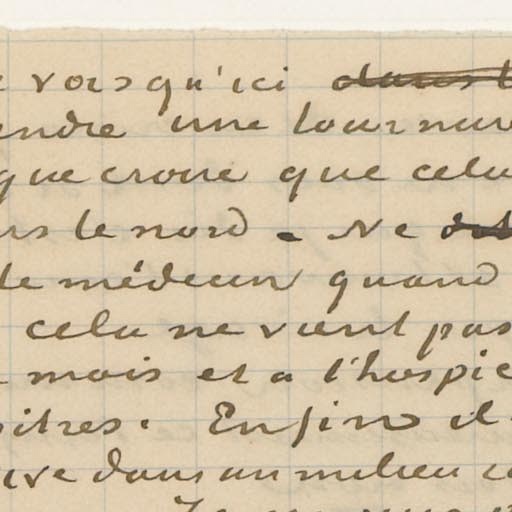 vois qu'ici dans l
endre une tournure
que croire que cela
rs le nord. Ne doit
le médecin quand
cela ne vient pas
mois et a l'hospice
itres. Enfin il
ive dans un milieu